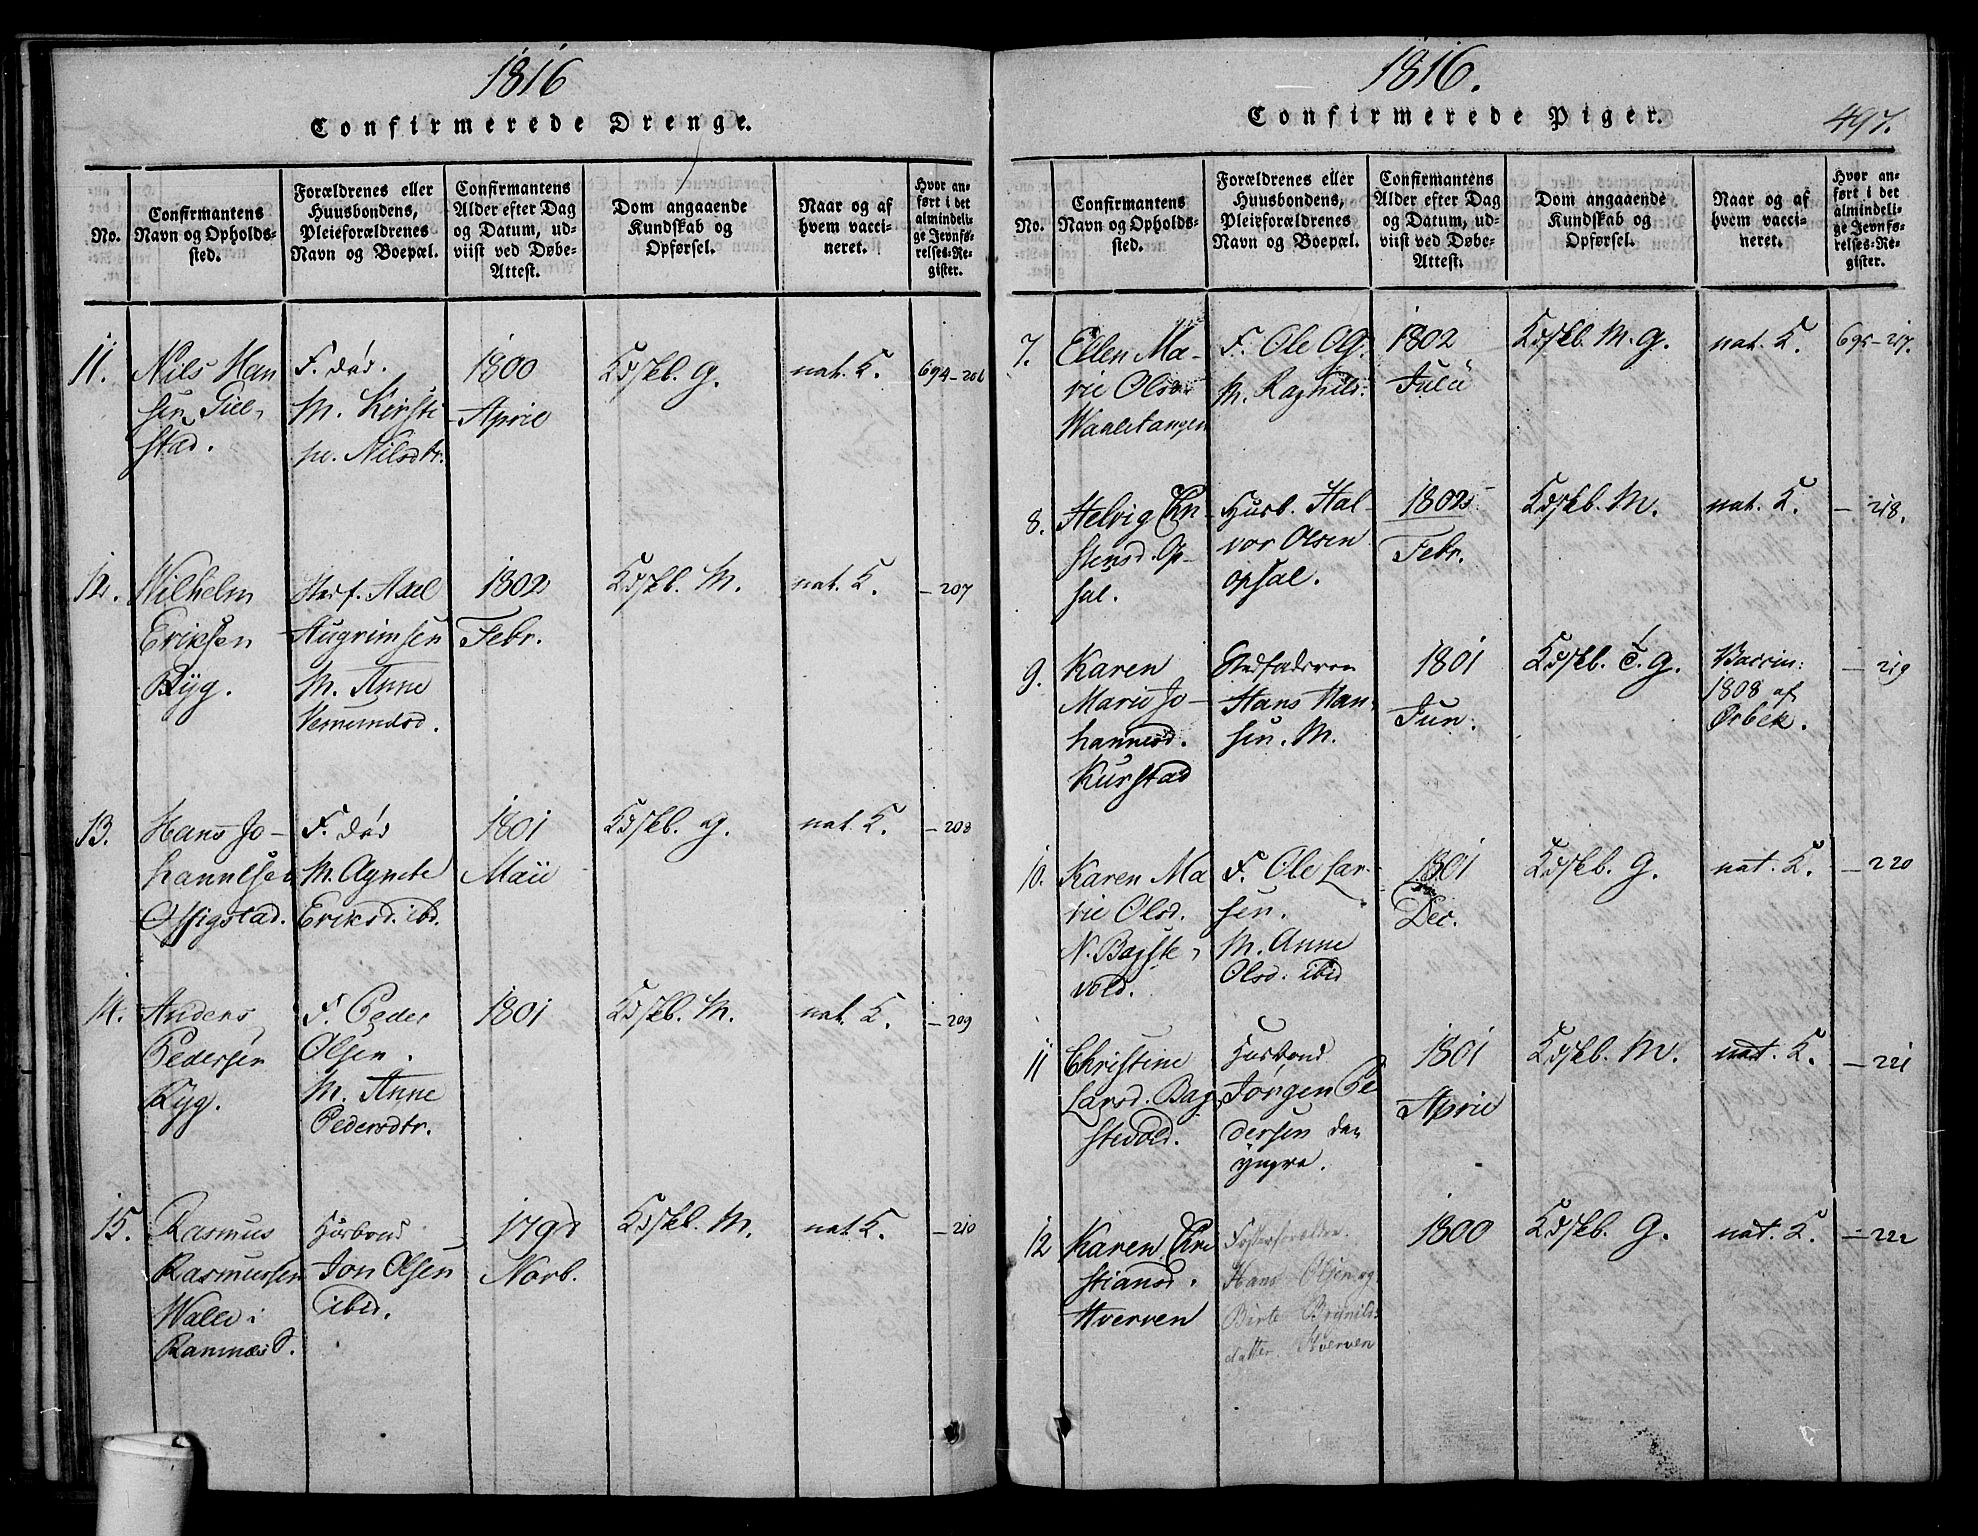 1816
Confirmerede Drenge.
No.
Confirmantens
Navn og Opholds-
sted.
Forældrenes eller
Huusbondens,
Pleieforældrenes
Navn og Boepæl.
Confirmantens
Alder efter Dag
og Datum, ud-
viist ved Døbe-
Attest.
Dom angaaende
Kundskab og
Opførsel.
Naar og af
hvem vacci-
neret.
Hvor an-
ført i det
almindeli-
ge Jevnfø-
relses-Re-
gister.
11. Nils Han
sen
stad.
F. död.
M. Kirsti
ne. Nilsdtr.
1800
April
Kdskb. G.
nat. K.
694-206
12. Wilhelm
Eriksen
Ryg.
Axel
M. Anne
1802
Febr.
Kdskb. M.
nat. K.
- 207
13. Hans Jo-
hannesen
F. död
M. Agnete
Eriksd. ibd.
1801
Maii
Kdskb. G.
nat. K.
- 208
14. Anders
Pedersen
Ryg.
F. Peder
Olsen.
M. Anne
Pedersdtr.
1801
Kdskb. M.
nat. K.
- 209
15. Rasmus
Rasmussen
Walle i
Husbond
Jon Olsen
ibid.
Novb.
Kdskb. M.
nat K.
- 210
1816.
Confirmerede Piger.
497.
No.
Confirmantens
Navn og Opholds-
sted.
Forældrenes eller
Huusbondens,
Pleieforældrenes
Navn og Boepæl.
Confirmantens
Alder efter Dag
og Datum, ud-
viist ved Døbe-
Attest.
Dom angaaende
Kundskab og
Opførsel.
Naar og af
hvem vacci-
neret.
Hvor an-
ført i det
almindeli-
ge Jevnfø-
relses-Re-
gister.
7. Ellen Ma-
rie Olsd.
Waaletangen
F. Ole Ols.
M. Ragnild.
1802
Juli
Kdskb. M. G.
nat. K.
695-217.
8. Helvig Chri-
stensd. Op-
sal.
Husb. Hal-
vor Olsen
opsal.
1802
Febr.
Kdskb. M.
nat. K.
- 218.
9. Karen
Marie Jo-
hannesd.
Kurstad
Stedfaderen
Hans Han-
sen. M.
1801
Jun.
Kdskb. T. G.
Vaccin:
1808 af
Ørbek.
- 219
10. Karen Ma
rie Olsd.
N. Bagste-
vold.
F. Ole Lar-
sen.
M. Anne
Olsd. ibid
1801
Dec.
Kdskb. G.
nat. K.
- 220
11 Christine
Larsd. Bag-
stevold.
Husbond
Jörgen Pe
dersen den
yngre.
1801
April
Kdskb. M.
nat. K.
- 221
12 Karen Chri
stiansd.
Hverven
Fosterforældre.
Hans Olsen og
Birte Brynilds
datter. Hverven
1800
Kdskb. G.
nat. K.
- 222